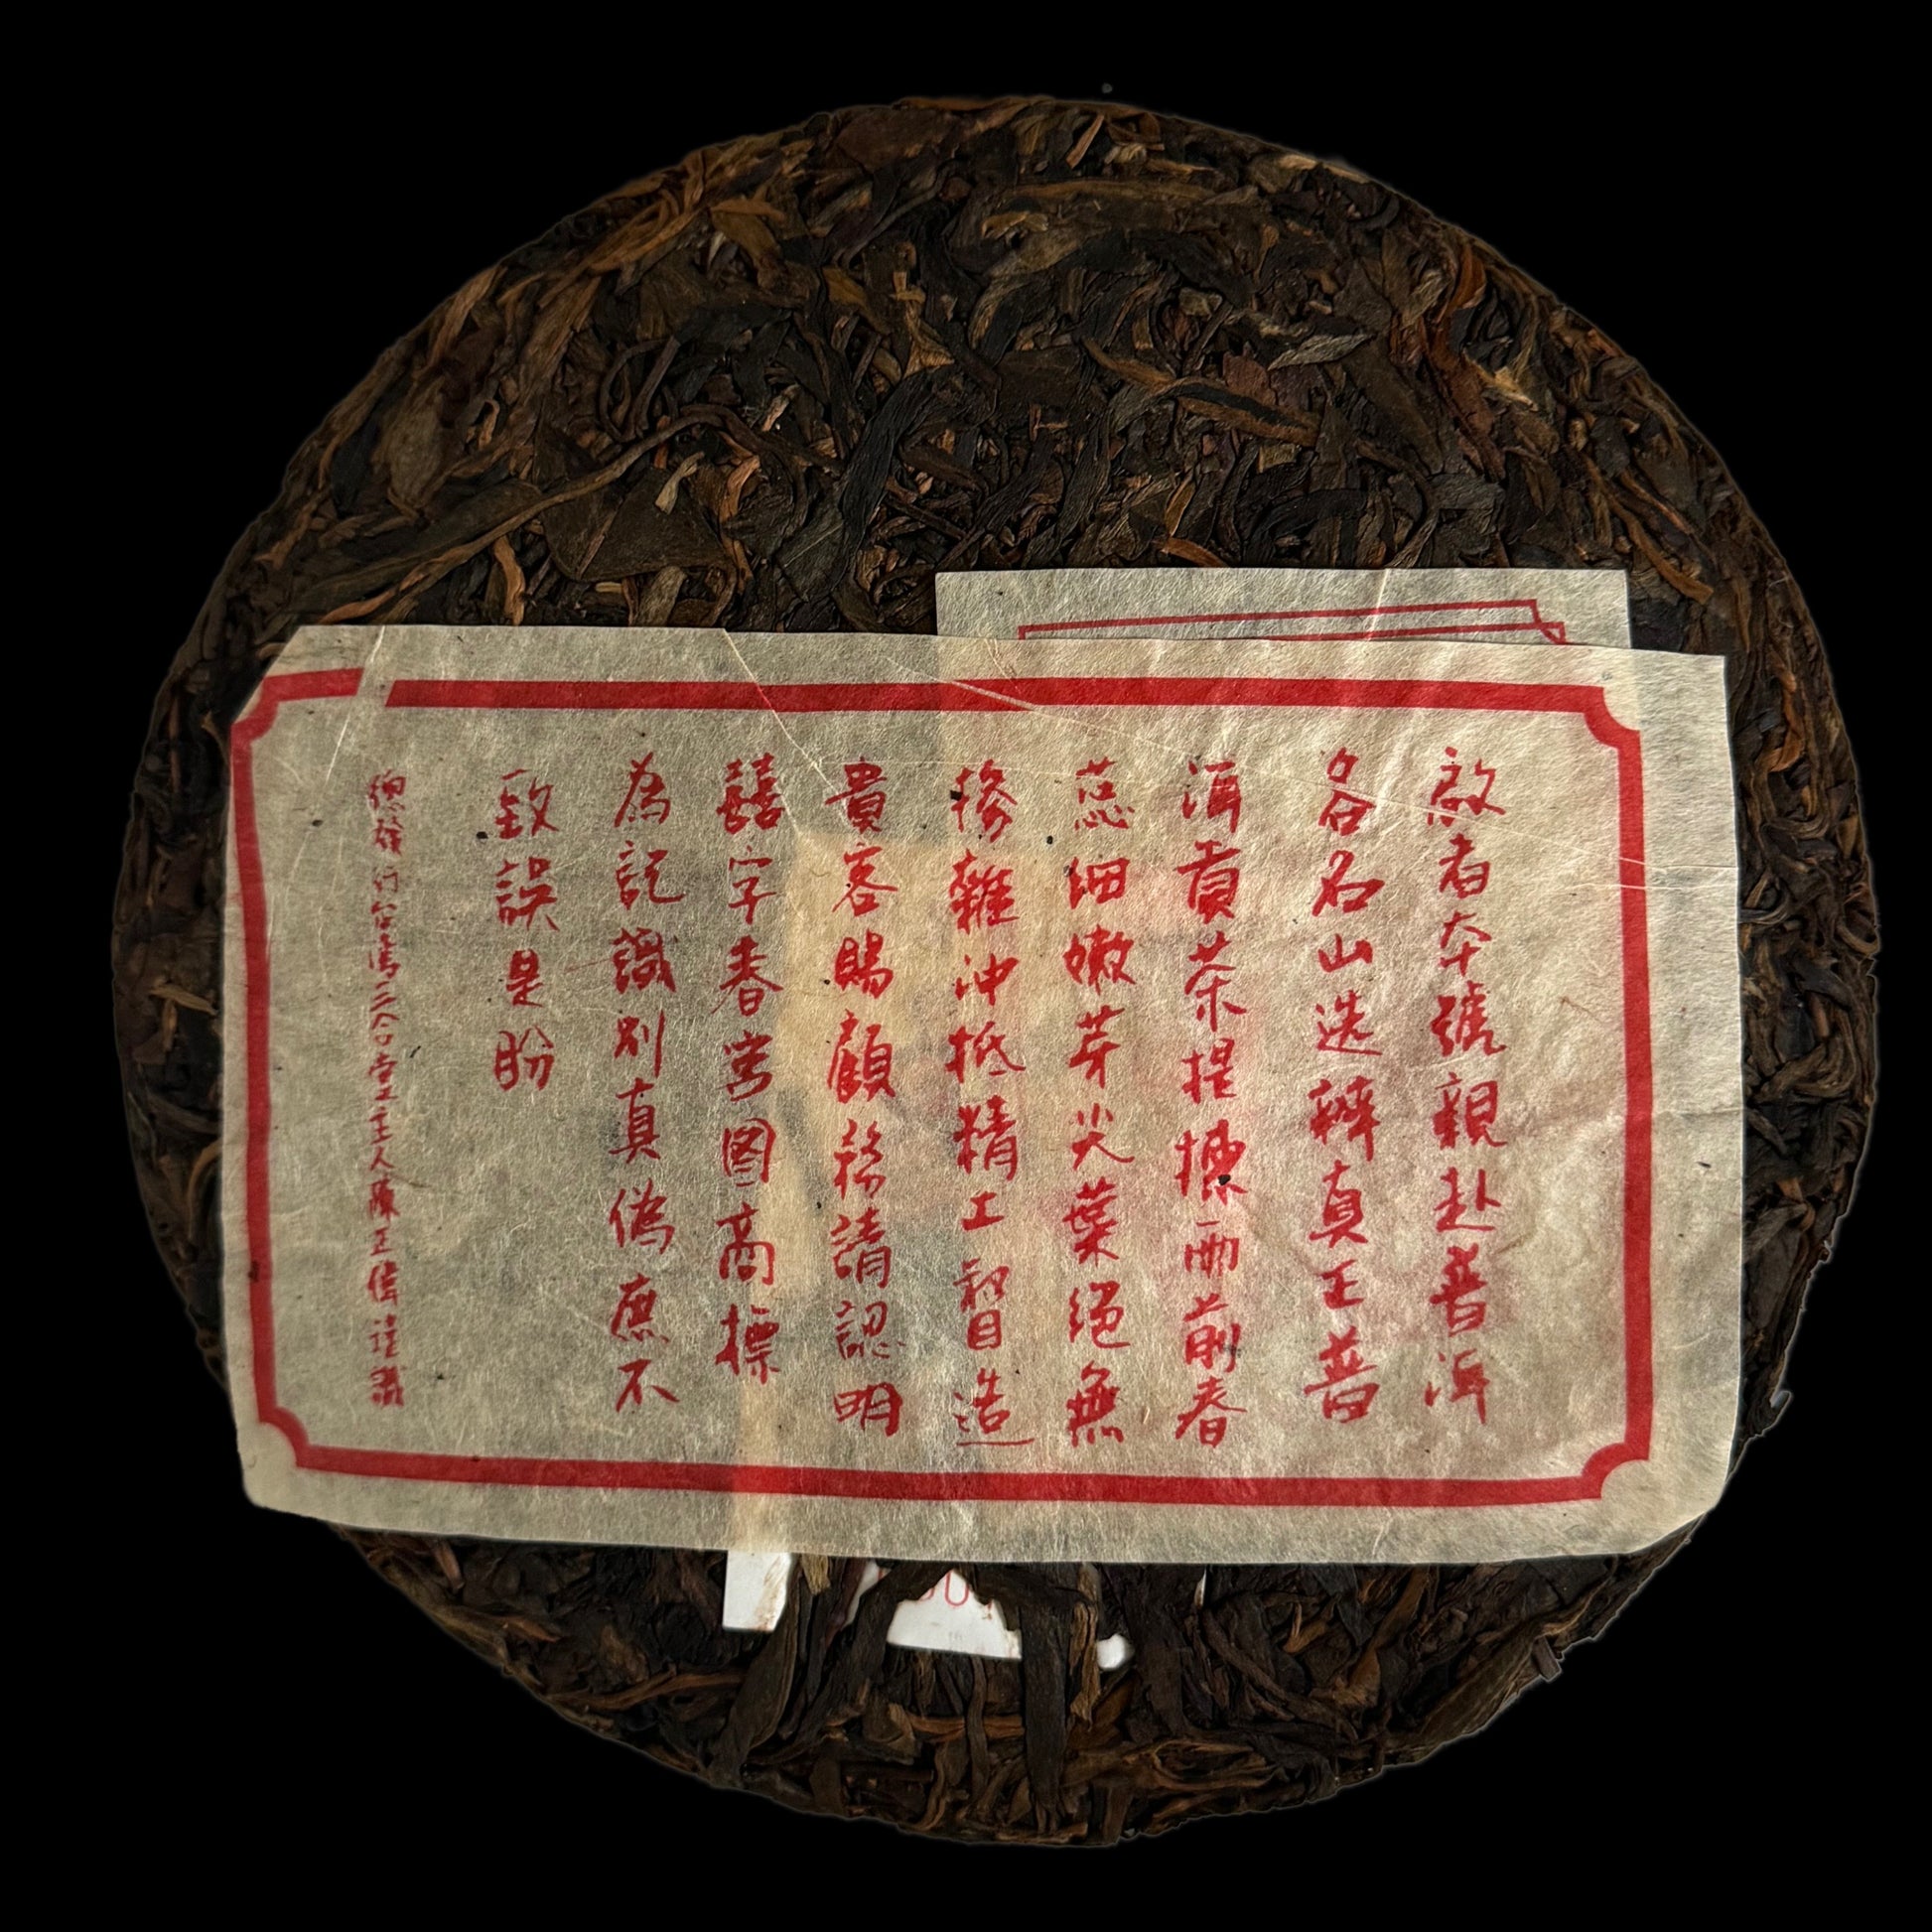 啟者本號親赴普洱
各名山选辦真正普
洱貢茶提揀雨前春
蕊细嫩芽尖葉絕無
摻雜冲抵精工督造
貴客賜顧務請認明
囍字春宮图商標
為記識別真偽庶不
致誤是盼
總發行台灣三合堂主人陳正偉謹識